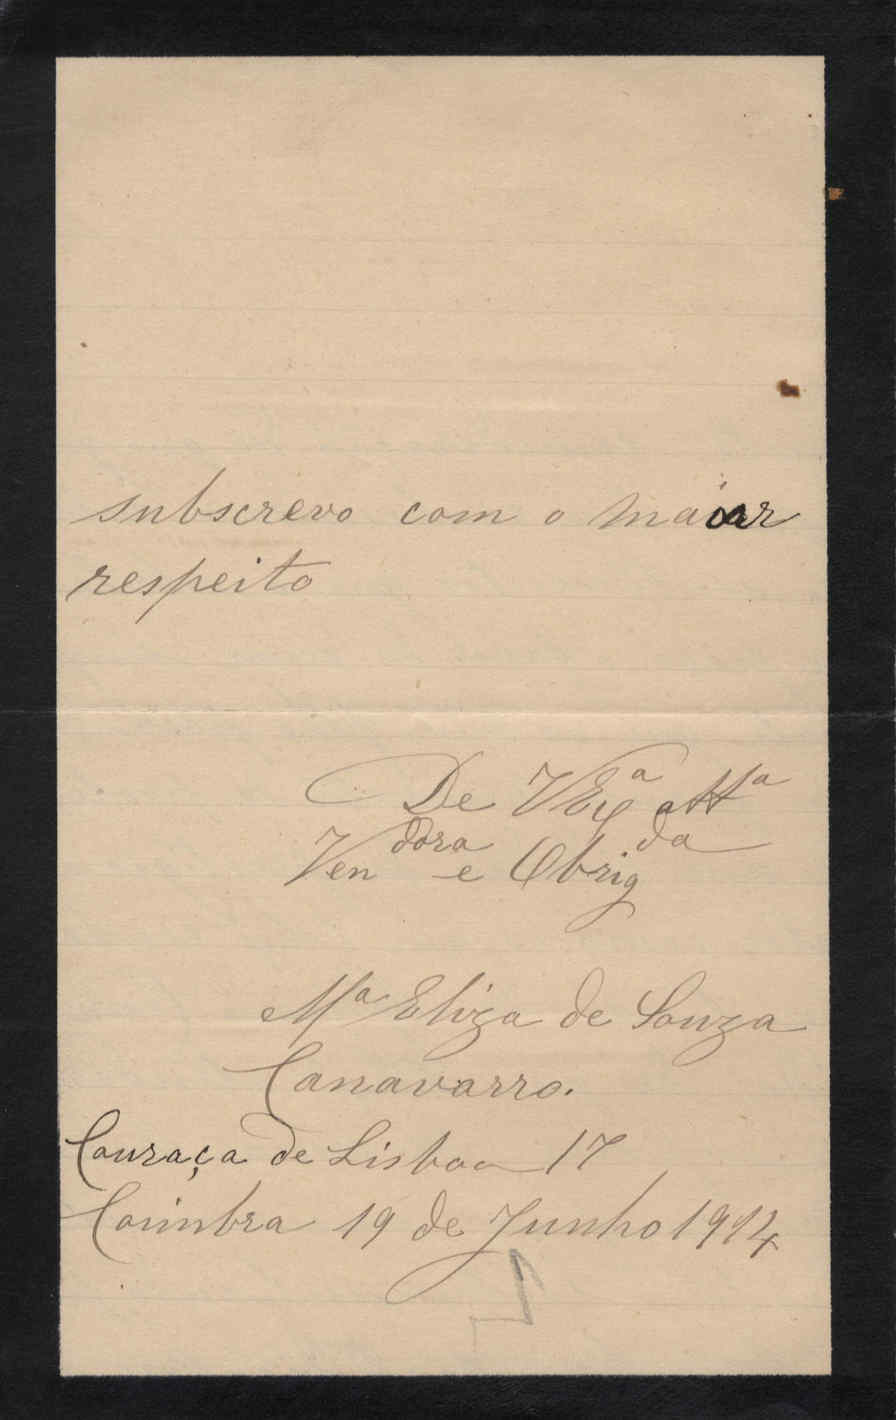 subscrevo com o maior
respeito
De VExª attª
Vendora e Obrigda
Mª Eliza de Souza
Canavarro.
Couraça de Lisboa 17
Coimbra 19 de Junho 1914